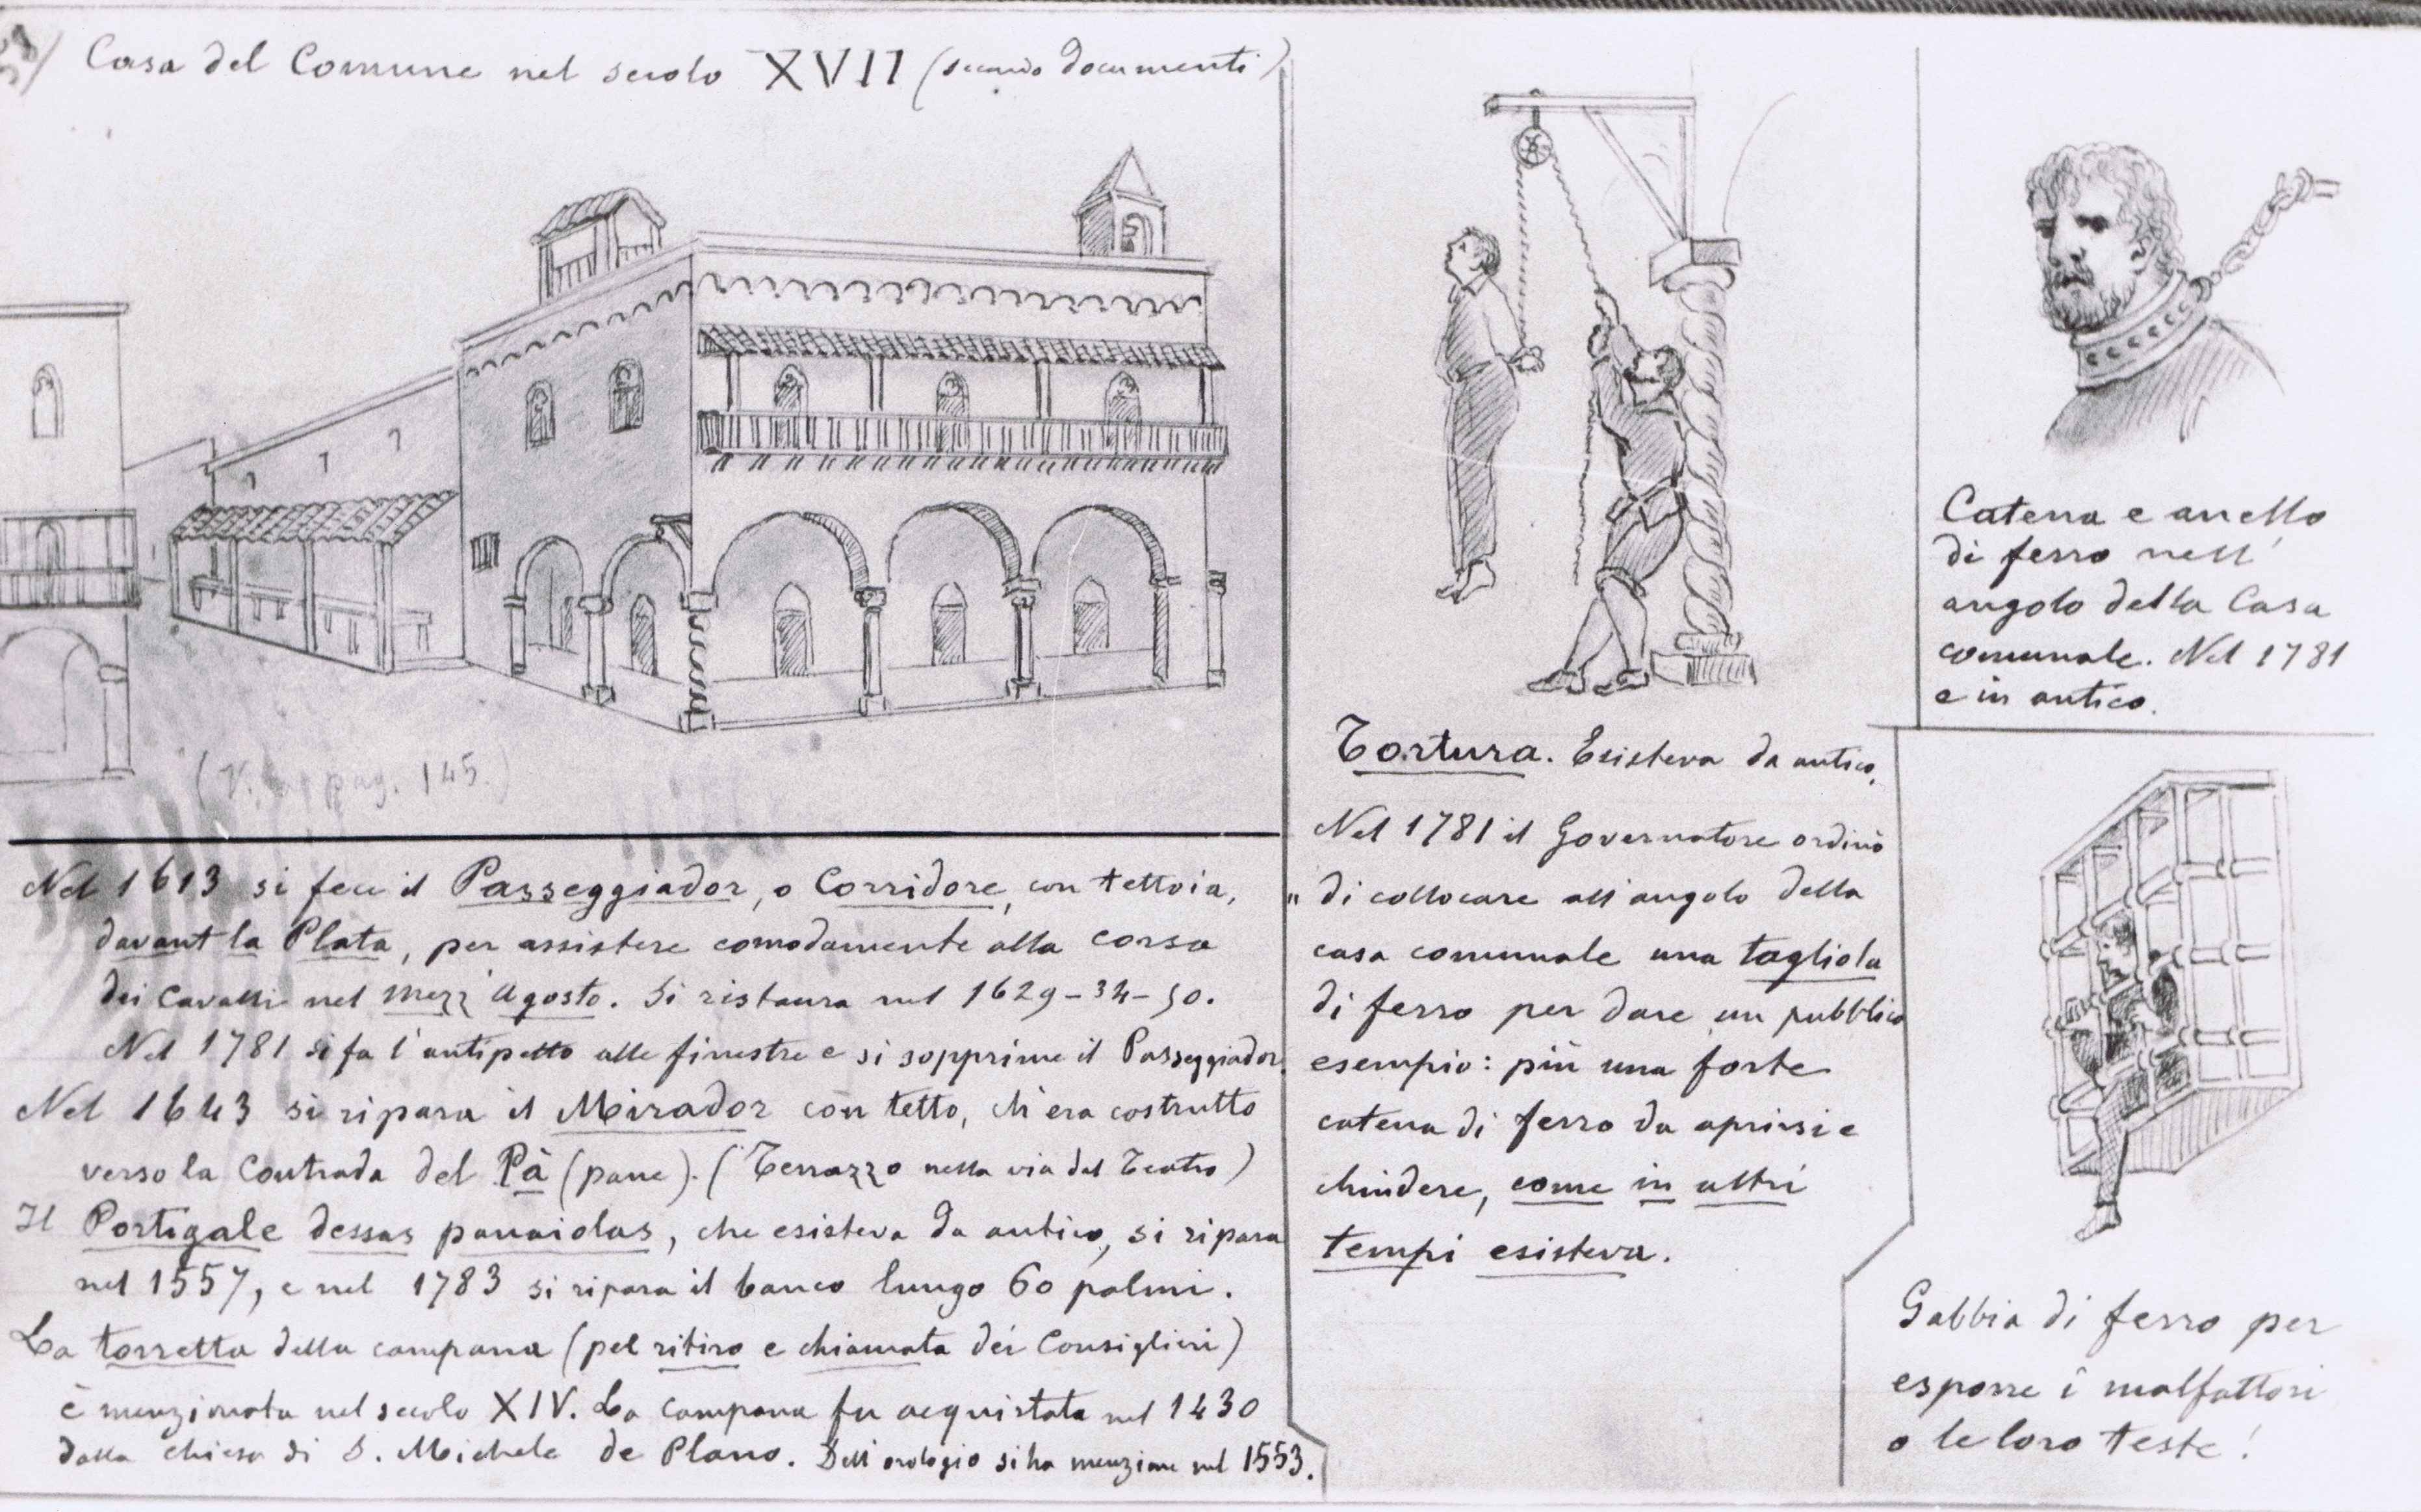 Casa del Comune nel secolo XVII (secondo documenti)
(V. pag. 145.)
Nel 1613 si fece il Passeggiador, o Corridore, con tettoia,
davant la Plata, per assistere comodamente alla corsa
dei Cavalli nel mezz'Agosto. Si ristaura nel 1629-34-50.
Nel 1781 si fa l'antipetto alle finestre e si sopprime il Passeggiador.
Nel 1643 si ripara il Mirador con tetto, ch'era costrutto
verso la Contrada del Pà (pane). (Terrazzo nella via del Teatro)
Il Portigale dessas panaiolas, che esisteva da antico, si ripara
nel 1557, e nel 1783 si ripara il banco lungo 60 palmi.
La torretta della campana (pel ritiro e chiamata dei Consiglieri)
è menzionata nel secolo XIV. La campana fu acquistata nel 1430
dalla chiesa di S. Michele de Plano. Dell'orologio si ha menzione nel 1553.
Tortura. Esisteva da antico.
Nel 1781 il Governatore ordinò
" di collocare all'angolo della
casa comunale una tagliola
di ferro per dare un pubblico
esempio: più una forte
catena di ferro da aprirsi e
chiudere, come in altri
tempi esisteva.
Catena e anello
di ferro nell'
angolo della Casa
comunale. Nel 1781
e in antico.
Gabbia di ferro per
esporre i malfattori
o le loro teste!